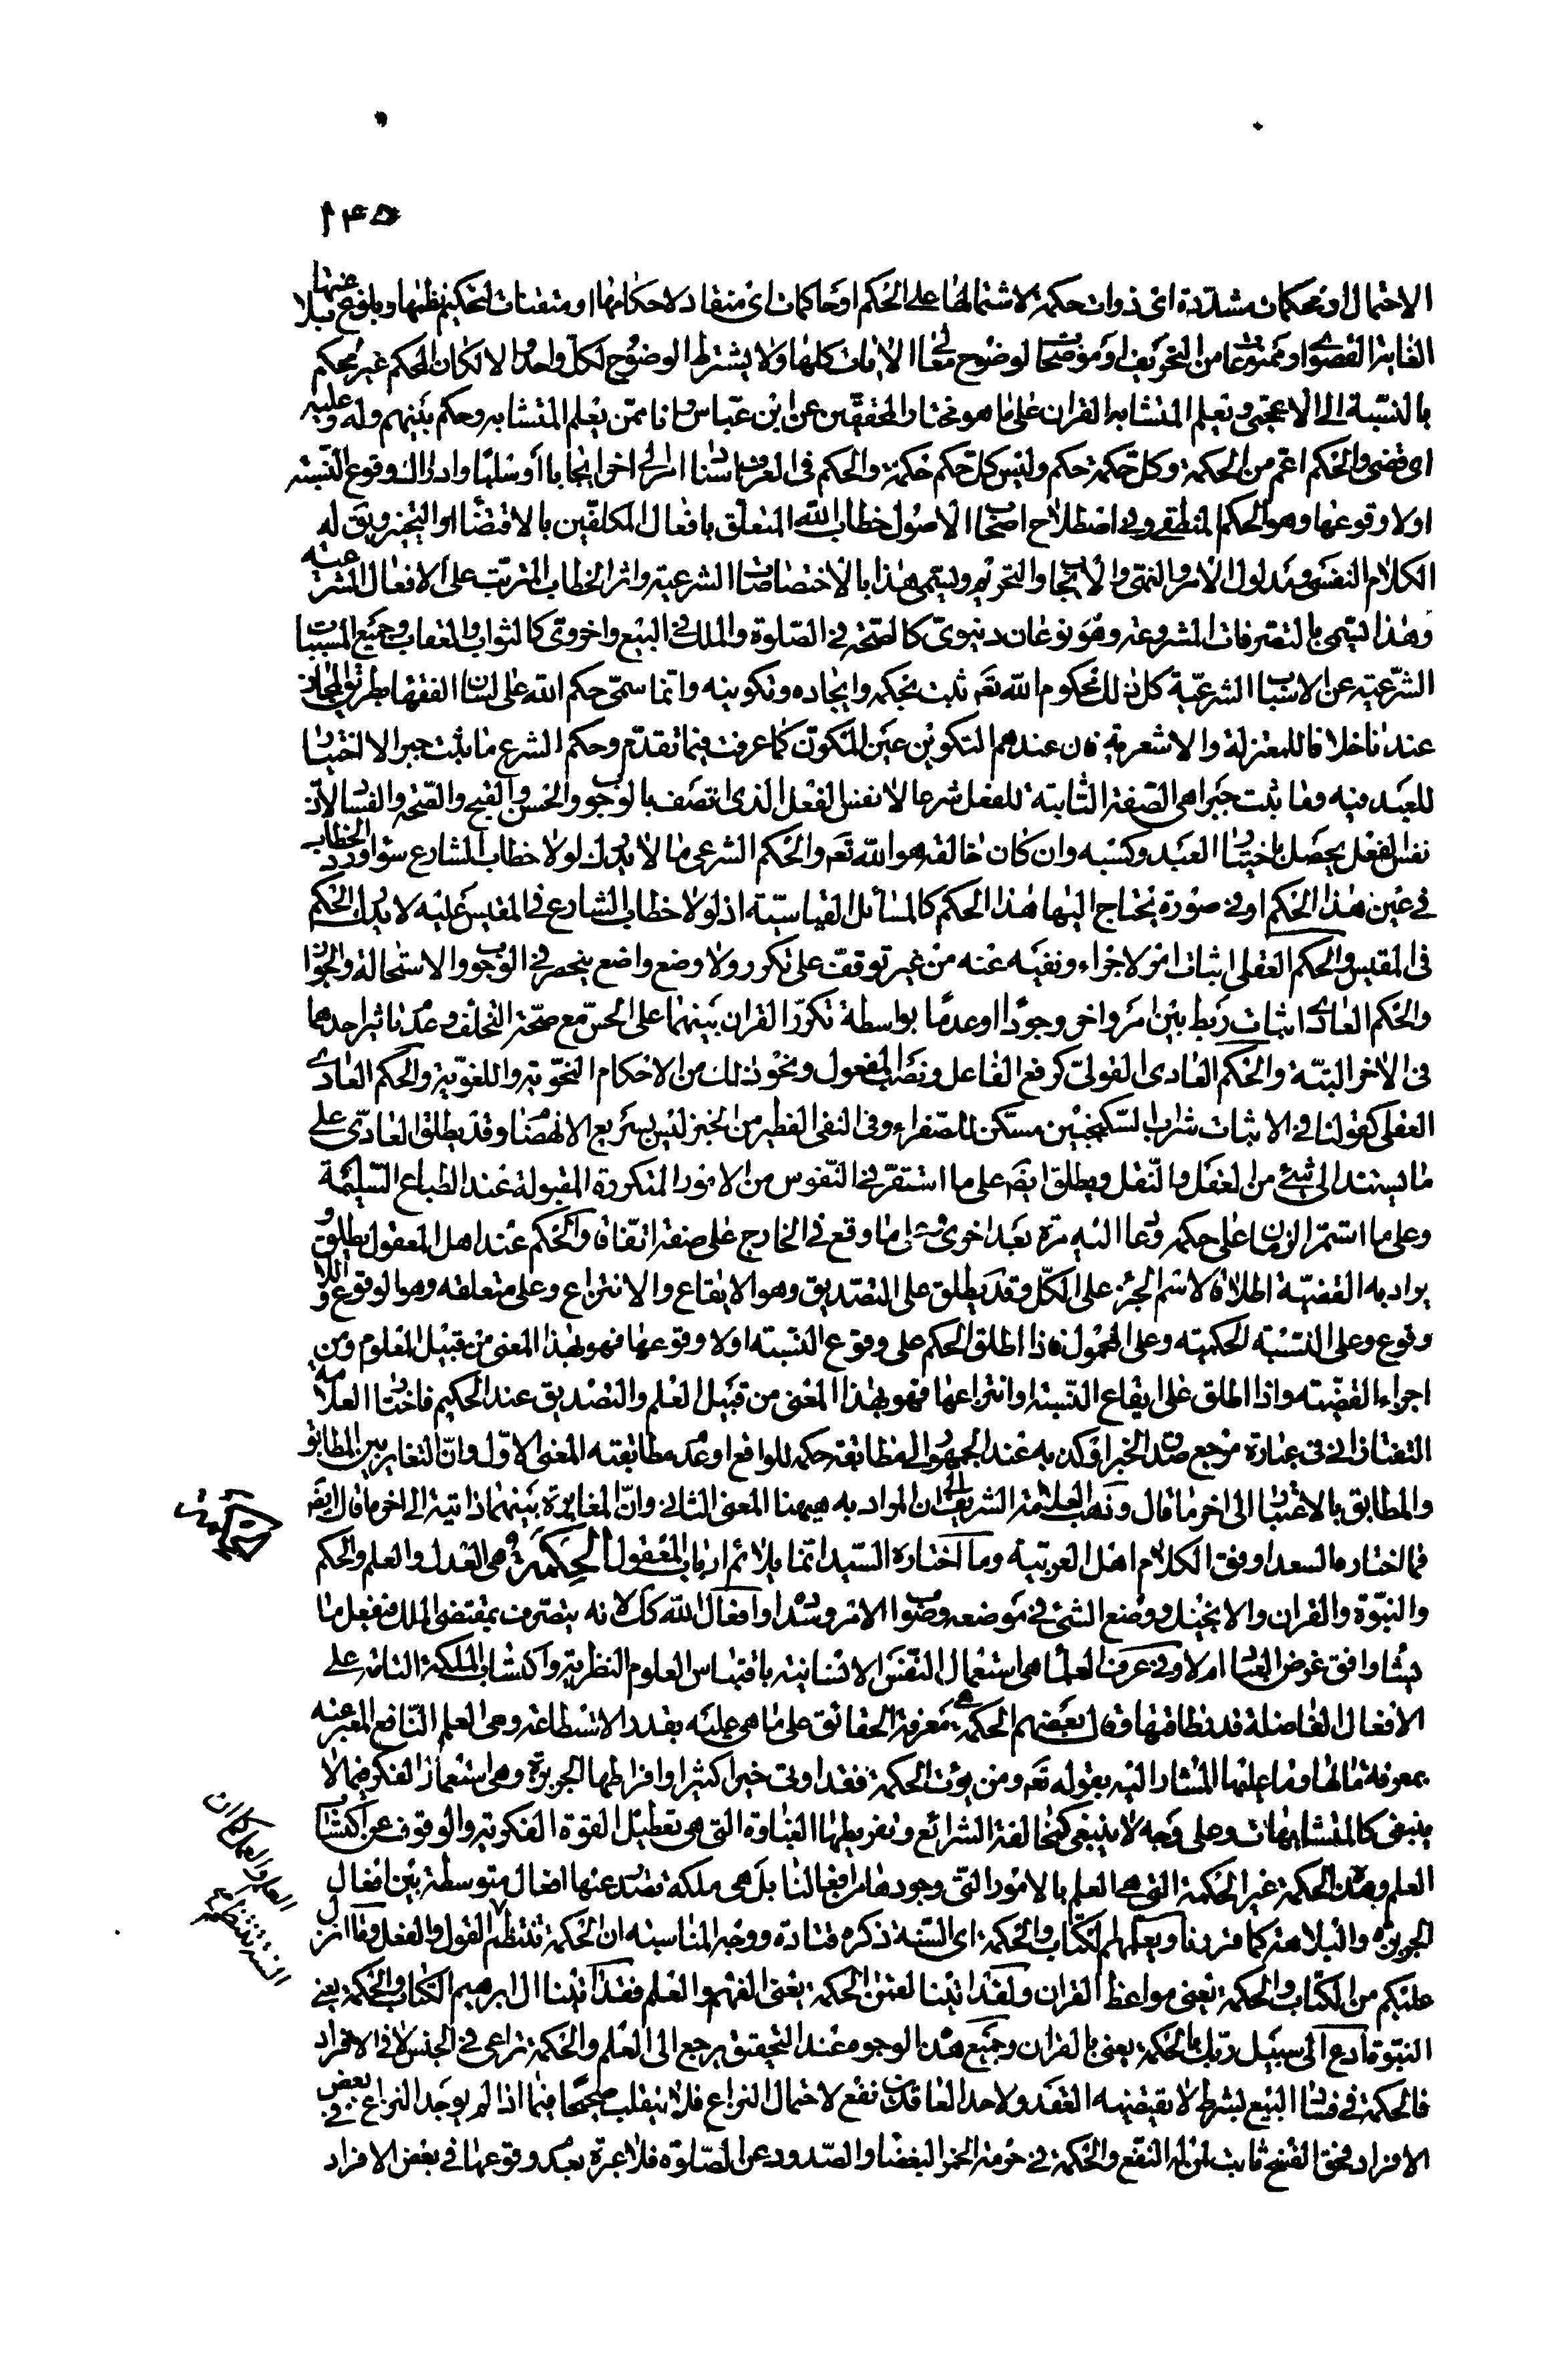 ١٤٥
الاحتمال او محكمات مشددة اى ذوات حكمة لاشتمالها على الحكم او حاكمات اى منقاد لاحكامها او متقنات لتحكيم نظمها وبلوغ بلاغتها
الغاية القصوى او ممنوعا من التحريف او موضحا لوضوح معانى الايات كلها ولا يشترط الوضوح لكل واحد والا لكان المحكم غير محكم
بالنسبة الى الاعجمى ويعلم المتشابه القران على ما هو مختار المحققين عن ابن عباس وانا ممن يعلم المتشابه وحكم بينهم وله وعليه
اى قضى والحكم اعم من الحكمة وكل حكمة حكم وليس كل حكم حكمة والحكم فى العرف اسناد امر الى اخر ايجابا او سلبا وادراك وقوع النسبة
او لا وقوعها وهو الحكم المنطقى وفى اصطلاح اصحاب الاصول خطاب الله المتعلق بافعال المكلفين بالاقتضاء او التخيير ويق له
الكلام النفسى ومدلول الامر والنهى والايجاب والتحريم ويسمى هذا بالاختصاصات الشرعية واثر الخطاب المترتب على الافعال الشرعية
وهذا ليسمى بالتصرفات المشروعة وهو نوعان دنيوى كالصحة فى الصلوة والملك فى البيع واخروى كالثواب والعقاب وجميع المسببات
الشرعية عن الاسباب الشرعية كل ذلك محكوم الله تعم ثبت بحكمه وايجاده وتكوينه وانما سمى حكم الله على لسان الفقهاء بطريق المجاز
عندنا خلافا للمعتزلة والاشعرية فان عندهم التكوين عين المكون كما عرفت فيما تقدم وحكم الشرع ما يثبت جبرا لا اختيار
للعبد فيه وما يثبت جبرا هى الصفة الثابتة للفعل شرعا لا نفس الفعل الذى اتصف بالوجوب والحسن والقبح والصحة والفساد لان
نفس الفعل يحصل باختيار العبد وكسبه وان كان خالقه هو الله تعم والحكم الشرعى ما لا يدرك لولا خطاب الشارع سواء ورد الخطاب
فى عين هذا الحكم او فى صورة يحتاج اليها هذا الحكم كالمسائل القياسية اذ لولا خطاب الشارع فى المقيس عليه لا يدرك الحكم
فى المقيس والحكم العقلى اثبات امر لاخر او نفيه عنه من غير توقف على تكرر ولا وضع واضع ينحصر فى الوجوب والاستحالة والجواز
والحكم العادى اثبات ربط بين امر واخر وجودا او عدما بواسطة تكرر القران بينهما على الحس مع صحة التخلف وعدم تاثير احدهما
فى الاخر البتة والحكم العادى القولى كرفع الفاعل ونصب المفعول ونحو ذلك من الاحكام النحوية واللغوية والحكم العادى
العقلى كقولنا فى الاثبات شراب السكنجبين مسكن للصفراء وفى النفى الفطير من الخبز ليس بسريع الانهضام وقد يطلق العادى على
ما يستند الى شئ من العقل والنقل ويطلق ايضا على ما استقر فى النفوس من الامور المتكررة المقبولة عند الطباع السليمة
وعلى ما استمر الزمان على حكمه وعاد اليه مرة بعد اخرى وعلى ما وقع فى الخارج على صفة اتفاقا والحكم عند اهل المعقول يطلق و
يراد به القضية اطلاقا لاسم الجزء على الكل وقد يطلق على التصديق وهو الايقاع والانتزاع وعلى متعلقه وهو الوقوع واللا
وقوع وعلى النسبة الحكمية وعلى المحمول فاذا اطلق الحكم على وقوع النسبة او لا وقوعها فهو بهذا المعنى من قبيل المعلوم ومن
اجزاء القضية واذا اطلق على ايقاع النسبة او انتزاعها فهو بهذا المعنى من قبيل العلم والتصديق عند الحكيم فاختار العلامة
التفتازانى فى عبارة مرجع صدق الخبر او كذبه عند الجمهور الى مطابقة حكمه للواقع او عدم مطابقته المعنى الاول وان التغاير بين المطابق
والمطابق بالاعتبار الى اخر ما قال وذهب العلامة الشريف الى ان المراد به هيهنا المعنى الثانى وان المغايرة بينهما ذاتية الى اخر ما قال ايضا
فما اختاره السعد اوفق الكلام اهل العربية وما اختاره السيد انما يلائم ارباب المعقول الحكمة هى العدل والعلم والحكم
والنبوة والقران والانجيل ووضع الشئ فى موضعه وصواب الامر وسداده وافعال الله كك لانه يتصرف بمقتضى الملك فيفعل ما
يشاء وافق غرض العباد ام لا وفى عرف العلماء هى استعمال النفس الانسانية باقتباس العلوم النظرية واكتساب الملكة التامة على
الافعال الفاضلة قدر طاقتها وقال بعضهم الحكمة هى معرفة الحقائق على ما هى عليه بقدر الاستطاعة وهى العلم النافع المعبر عنه
بمعرفة ما لها وما عليها المشار اليه بقوله تعم ومن يؤت الحكمة فقد اوتى خيرا كثيرا وافراطها الجربزة وهى استعمال الفكر فيما لا
ينبغى كالمتشابهات وعلى وجه لا ينبغى كمخالفة الشرائع وتفريطها الغباوة التى هى تعطيل القوة الفكرية والوقوف عن اكتساب
العلم وهذه الحكمة غير الحكمة التى هى العلم بالامور التى وجودها من افعالنا بل هى ملكة تصدر عنها افعال متوسطة بين افعال
الجربزة والبلاهة كما مر بنا ويعلمهم الكتاب والحكمة اى السنة ذكره قتادة ووجه المناسبة ان الحكمة تنتظم القول والفعل وما انزل
عليكم من الكتاب والحكمة يعنى مواعظ القران ولقد اتينا لقمن الحكمة يعنى الفهم والعلم فقد اتينا ال ابرهيم الكتاب والحكمة يعنى
النبوة ادع الى سبيل ربك بالحكمة يعنى بالقران وجميع هذه الوجوه عند التحقيق يرجع الى العلم والحكمة تراعى فى الجنس لا فى الافراد
فالحكمة فى فساد البيع بشرط لا يقتضيه العقد ولاحد العاقدين نفع لاحتمال النزاع فلا ينقلب صحيحا فيما اذا لم يوجد النزاع فى بعض
الافراد فحق الفسخ ثابت لمن له النفع والحكمة فى حرمة الخمر البغضاء والصدود عن الصلوة فلا عبرة بعدم وقوعها فى بعض الافراد